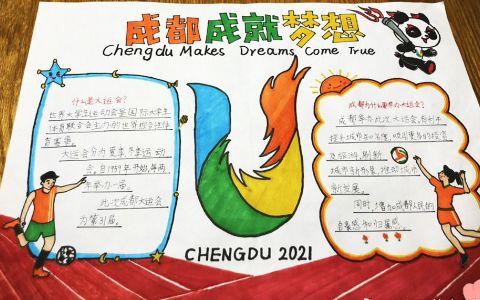 成都成就梦想
Chengdu Makes Dreams Come True
什么是大运会?
世界大学生运动会是国际大学生
体育联合会主办的世界综合性体
育赛事。
大运会分为夏季冬季运动
会,自1959年开始,每两
年举办一届。
此次成都大运会
为第31届。
成都为什么要举办大运会?
成都举办此次大运会,有利于
提升城市知名度,
及旅游,刷新
城市新形象,推动城市
新发展。
同时,增加成都人民的
自豪感和归属感。
CHENGDU 2021